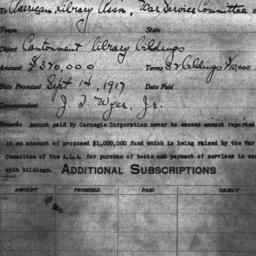 To American Library Assn. War Service Committee
Town State
Object Cantonment Library Bldgs
Amount $320,000 Terms 32 bldgs $10,000
Date Promised Sept 14, 1917 Date Paid
Correspondent J. I. Wyer, Jr.
Remarks Amount paid by Carnegie Corporation never to exceed amount reported
is ex amount of proposed $1,000,000 fund which is being raised by the War
Committee of the A.L.A. for purchas of books and payment of services in con
with bildings. ADDITIONAL SUBSCRIPTIONS
AMOUNT PROMISED PAID OBJECT